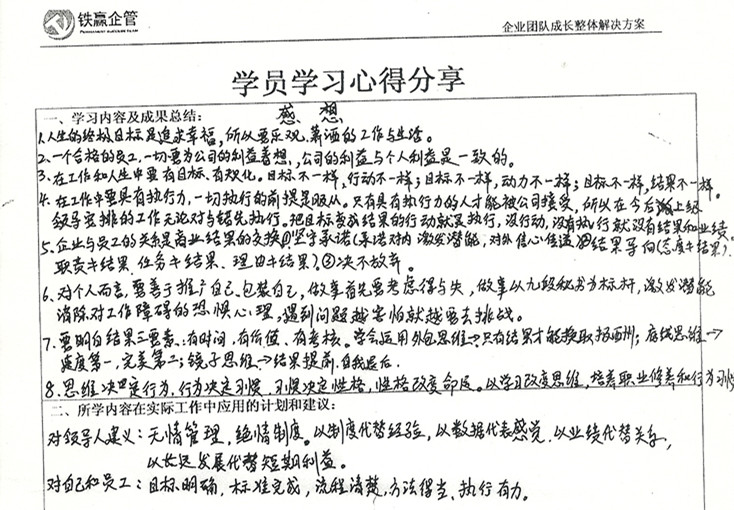 铁赢企管
企业团队成长整体解决方案
学员学习心得分享
一、学习内容及成果总结： 感 想
1.人生的终极目标是追求幸福，所以要乐观、潇洒的工作与生活。
2.一个合格的员工，一切要为公司的利益着想，公司的利益与个人利益是一致的。
3.在工作和人生中要有目标、有观化。目标不一样，行动不一样；目标不一样，动力不一样；目标不一样，结果不一样。
4.在工作中要具有执行力，一切执行的前提是服从。只有具有执行力的人才能被公司接受，所以在今后 上级
领导安排的工作无论对与错先执行。把目标变成结果的行动就是执行，没行动，没有执行就没有结果和业绩。
5.企业与员工的关系是商业结果的交换①坚守承诺（承诺对内激发潜能，对外信心传递②结果导向（态度≠结果）.
职责≠结果、任务≠结果、理由≠结果）.③决不放弃。
6.对个人而言，要善于推广自己、包装自己，做事首先要考虑得与失，做事以九段秘书为标杆，激发潜能
消除对工作障碍的恐惧心理，遇到问题越害怕就越要去挑战。
7.要明白结果三要素：有时间、有价值、有考核。学会运用外包思维→只有结果才能换取报酬；底线思维→
速度第一，完美第二；镜子思维→结果提前，自我退后.
8.思维决定行为，行为决定习惯，习惯决定性格，性格改变命运。以学习改变思维，培养职业修养和行为习惯
二、所学内容在实际工作中应用的计划和建议：
对领导人建义：无情管理，绝情制度。以制度代替经验，以数据代表感觉，以业绩代替关系，
以长远发展代替短期利益。
对自己和员工：目标明确，标准完成，流程清楚，方法得当、执行有力。